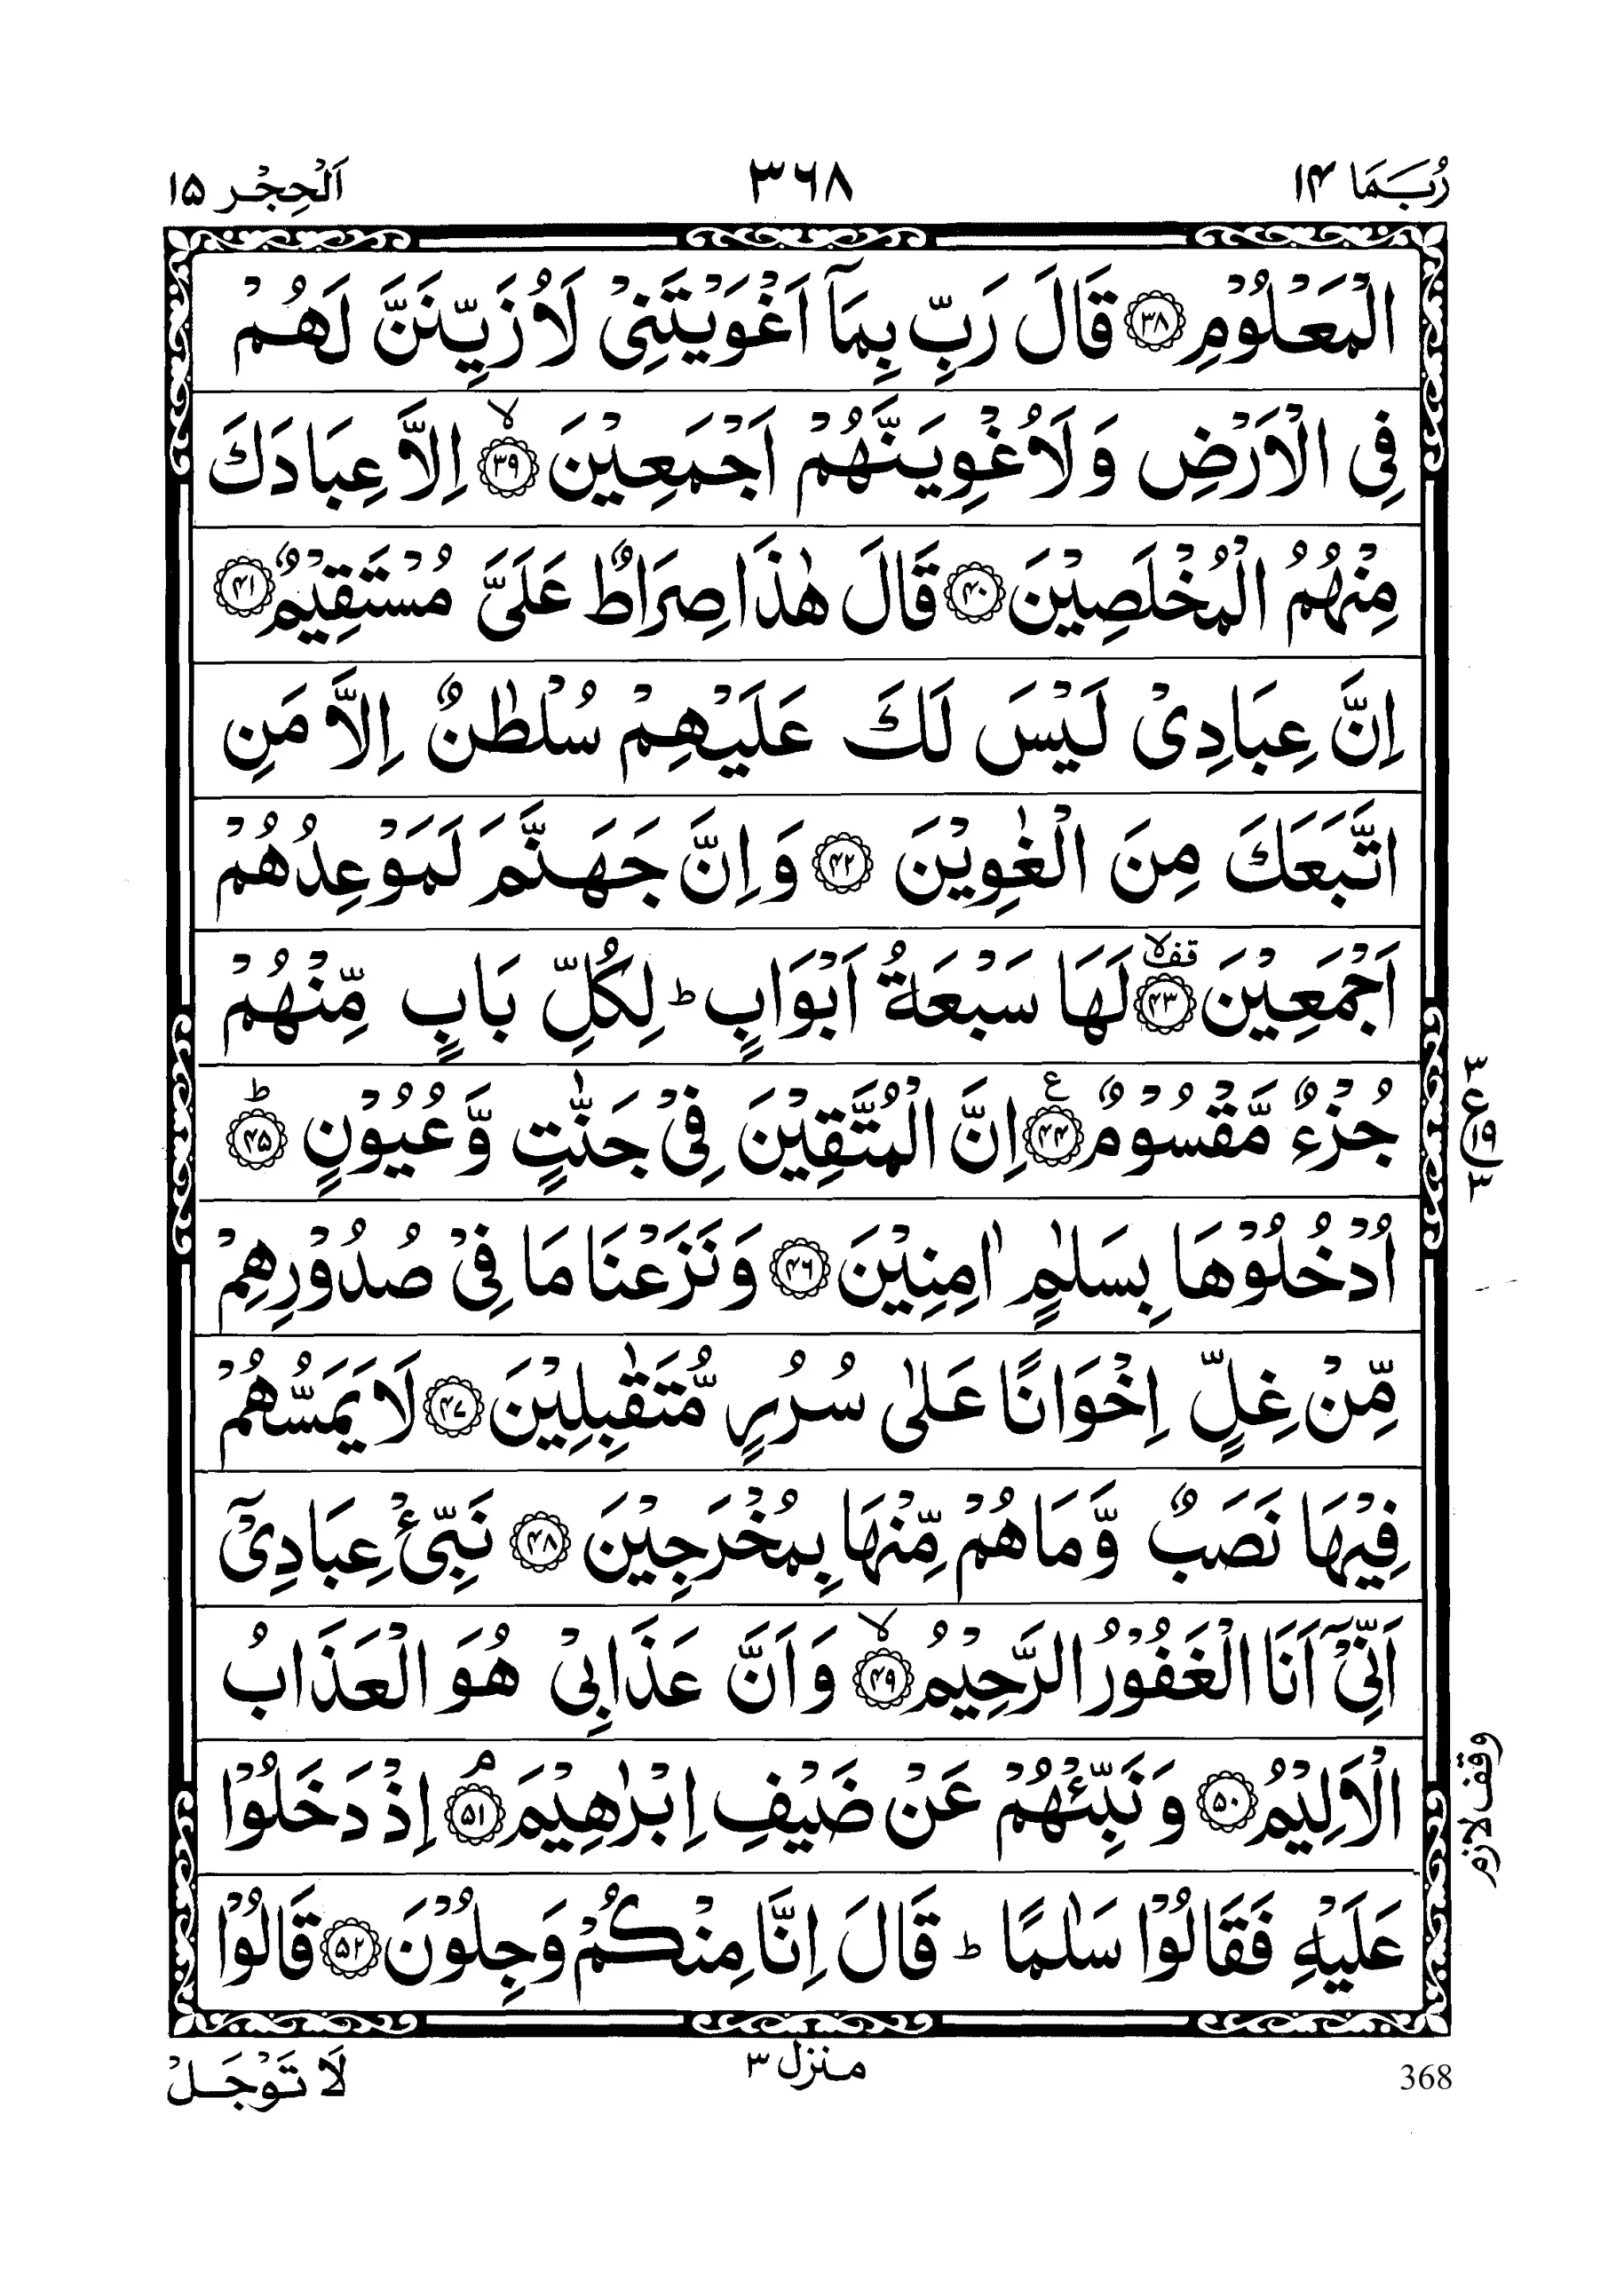 رُبَمَا ١٤ ٣٦٨ اَلْحِجْر ١٥
الْمَعْلُوْمِ ﴿٣٨﴾ قَالَ رَبِّ بِمَاۤ اَغْوَيْتَنِىْ لَاُزَيِّنَنَّ لَهُمْ
فِى الْاَرْضِ وَلَاُغْوِيَنَّهُمْ اَجْمَعِيْنَ ۙ﴿٣٩﴾ اِلَّا عِبَادَكَ
مِنْهُمُ الْمُخْلَصِيْنَ ﴿٤٠﴾ قَالَ هٰذَا صِرَاطٌ عَلَىَّ مُسْتَقِيْمٌ ﴿٤١﴾
اِنَّ عِبَادِىْ لَيْسَ لَكَ عَلَيْهِمْ سُلْطٰنٌ اِلَّا مَنِ
اتَّبَعَكَ مِنَ الْغٰوِيْنَ ﴿٤٢﴾ وَاِنَّ جَهَنَّمَ لَمَوْعِدُهُمْ
اَجْمَعِيْنَ قف لا ﴿٤٣﴾ لَهَا سَبْعَةُ اَبْوَابٍ ؕ لِكُلِّ بَابٍ مِّنْهُمْ
جُزْءٌ مَّقْسُوْمٌ ع ﴿٤٤﴾ اِنَّ الْمُتَّقِيْنَ فِىْ جَنّٰتٍ وَّعُيُوْنٍ ؕ﴿٤٥﴾
٣ ع ١٩ ٣
اُدْخُلُوْهَا بِسَلٰمٍ اٰمِنِيْنَ ﴿٤٦﴾ وَنَزَعْنَا مَا فِىْ صُدُوْرِهِمْ
مِّنْ غِلٍّ اِخْوَانًا عَلٰى سُرُرٍ مُّتَقٰبِلِيْنَ ﴿٤٧﴾ لَا يَمَسُّهُمْ
فِيْهَا نَصَبٌ وَّمَا هُمْ مِّنْهَا بِمُخْرَجِيْنَ ﴿٤٨﴾ نَبِّئْ عِبَادِىْۤ
اَنِّىْۤ اَنَا الْغَفُوْرُ الرَّحِيْمُ ۙ﴿٤٩﴾ وَاَنَّ عَذَابِىْ هُوَ الْعَذَابُ
الْاَلِيْمُ ﴿٥٠﴾ وَنَبِّئْهُمْ عَنْ ضَيْفِ اِبْرٰهِيْمَ ۘ﴿٥١﴾ اِذْ دَخَلُوْا
وقف لازم
عَلَيْهِ فَقَالُوْا سَلٰمًا ؕ قَالَ اِنَّا مِنْكُمْ وَجِلُوْنَ ﴿٥٢﴾ قَالُوْا
368 منزل ٣ لَا تَوْجَلْ